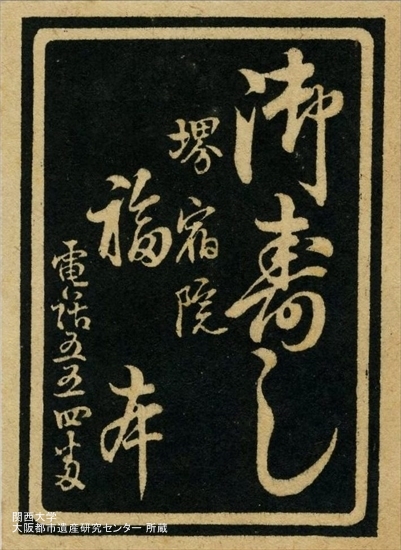 御寿し
堺宿院
福本
電話五五四番
関西大学
大阪都市遺産研究センター 所蔵